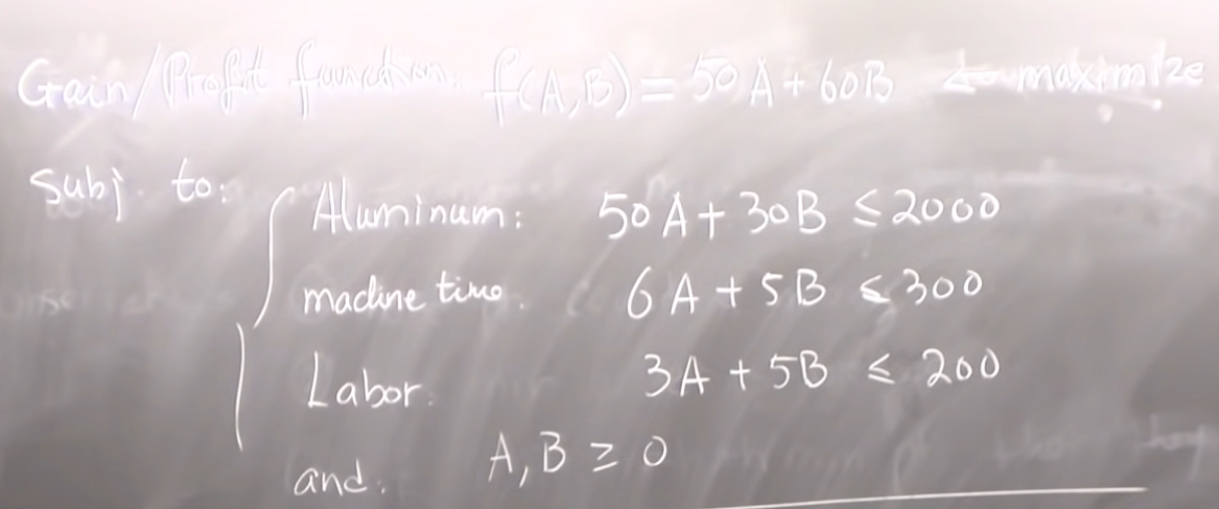 Gain/Profit function: f(A,B) = 50A + 60B to maximize
Subj. to:
Aluminum: 50A + 30B ≤ 2000
madine time. 6A + 5B ≤ 300
Labor. 3A + 5B ≤ 200
and. A, B ≥ 0